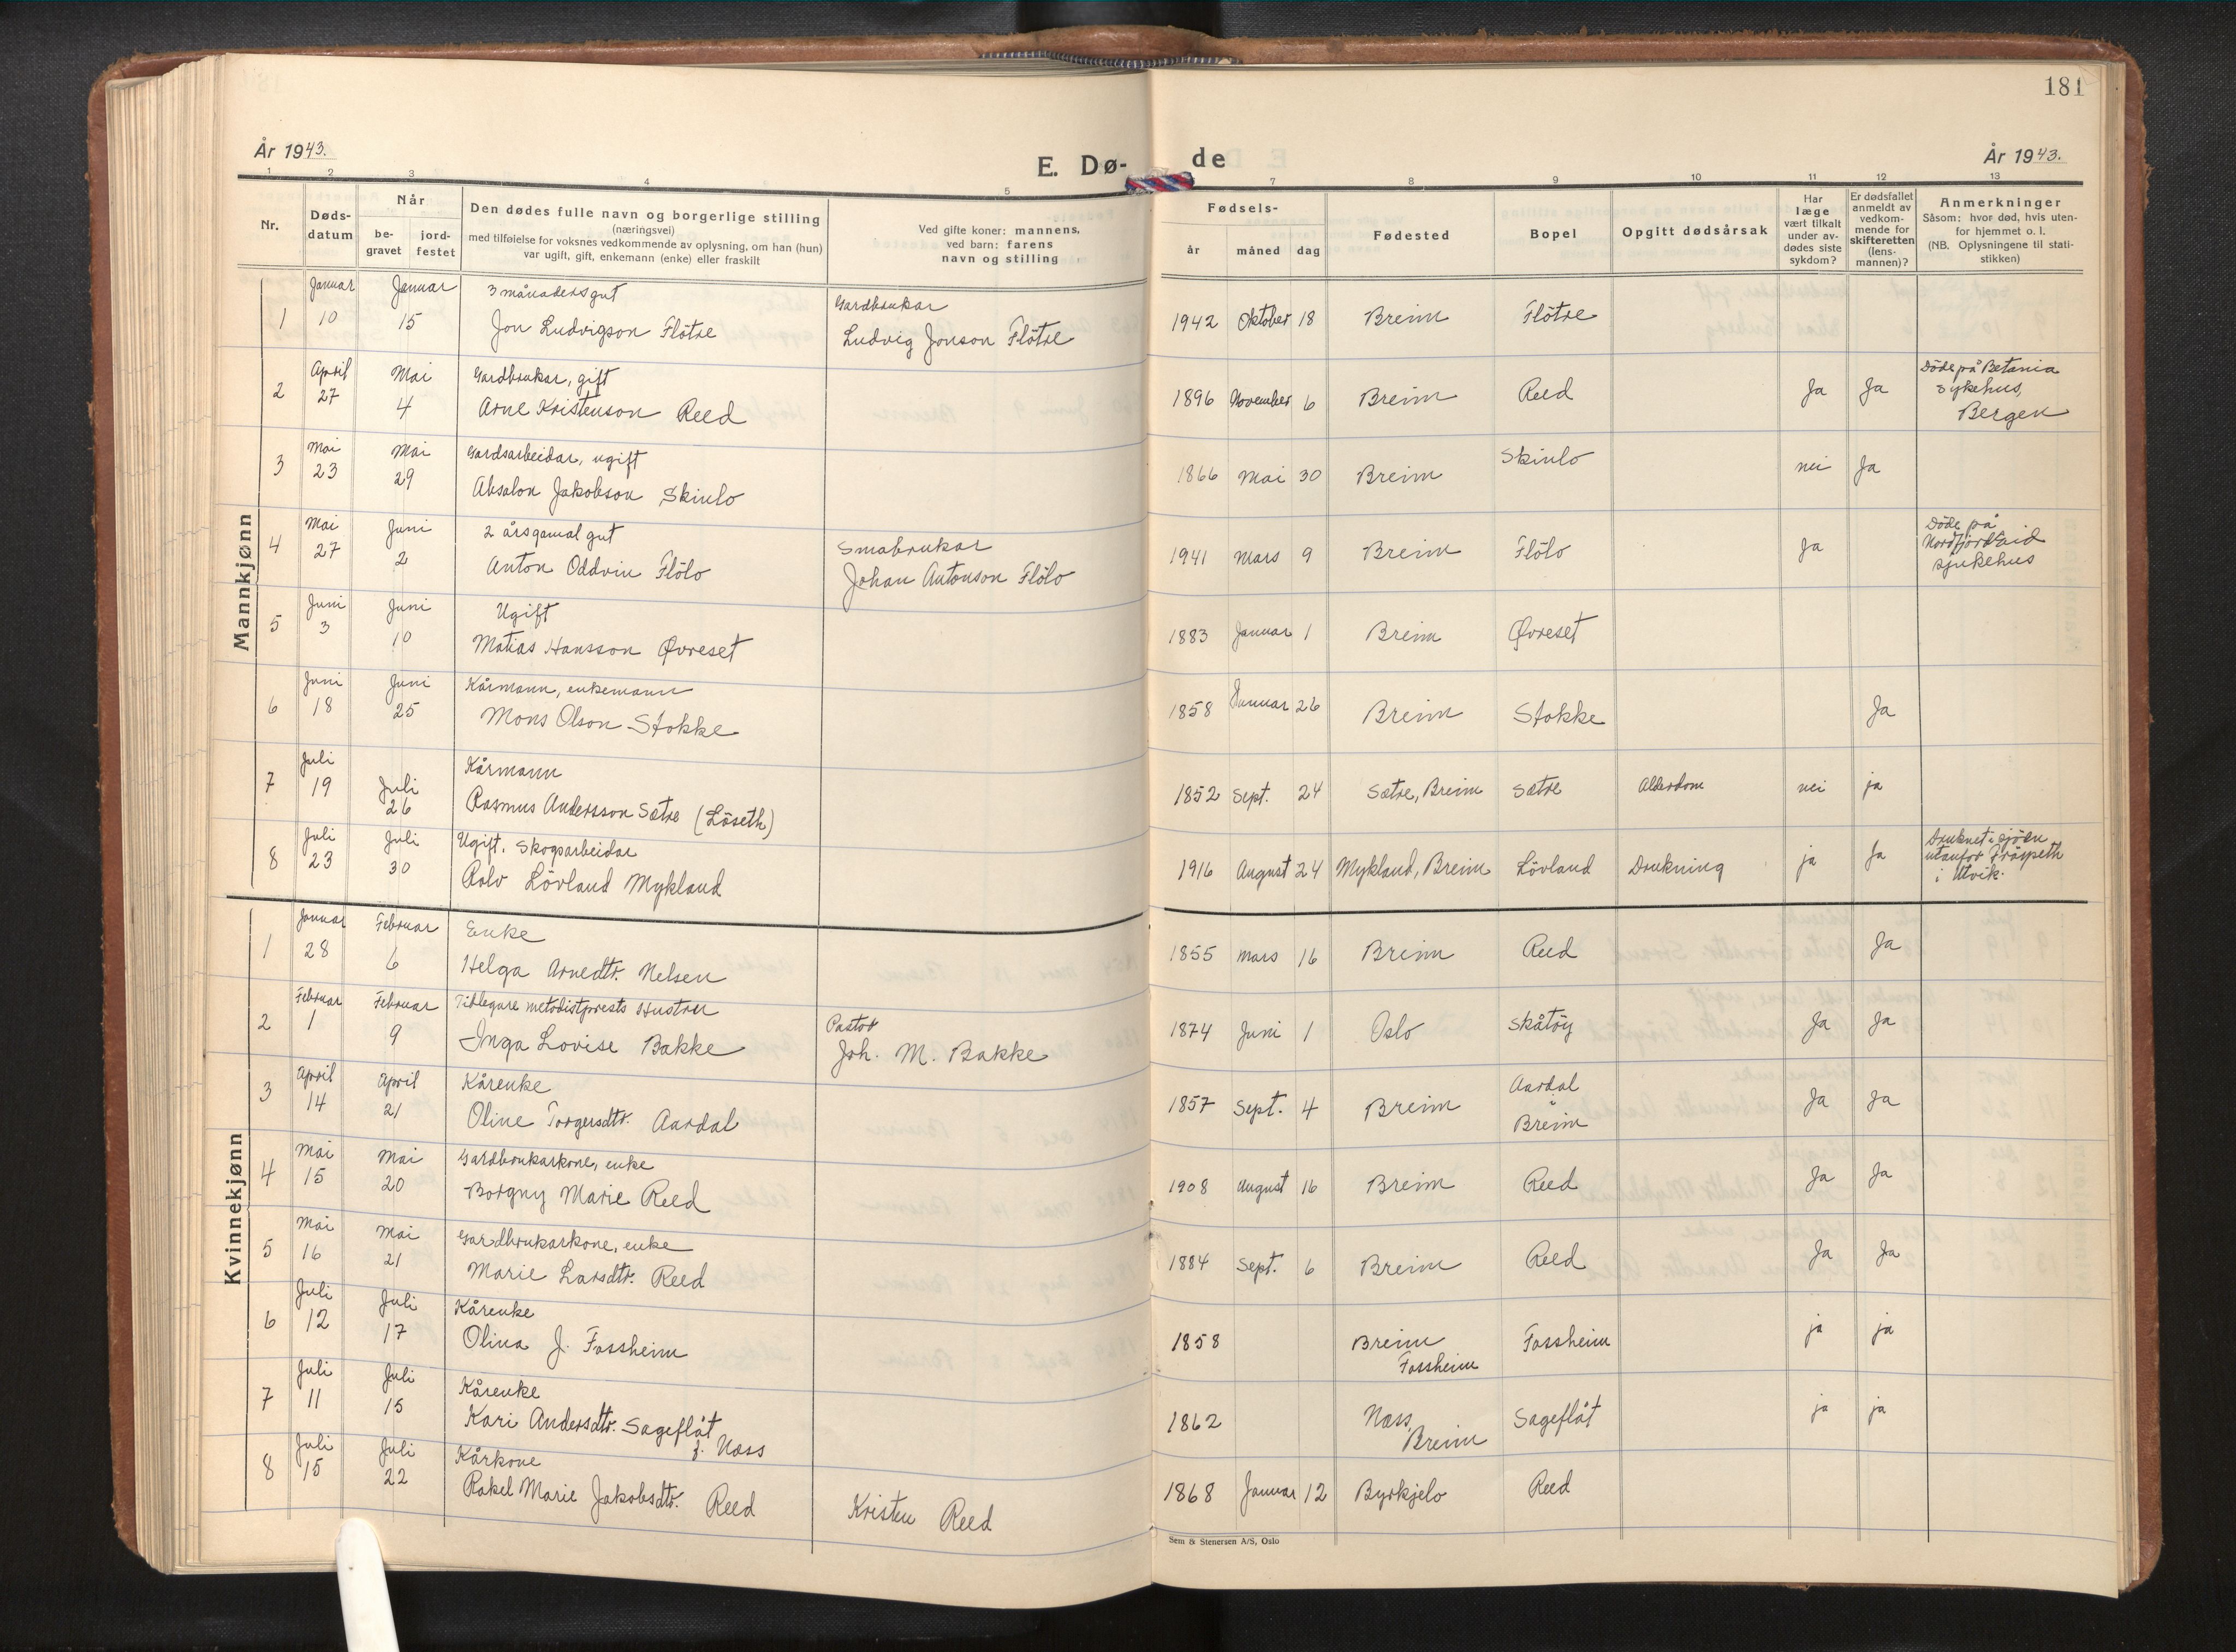 181
År 1943.
E. Dø-
de
År 1943.
1 2 3 4 5 7 8 9 10 11 12 13
Nr.
Døds-
datum
Når
be-
gravet
jord-
festet
Den dødes fulle navn og borgerlige stilling
(næringsvei)
med tilføielse for voksnes vedkommende av oplysning, om han (hun)
var ugift, gift, enkemann (enke) eller fraskilt
Ved gifte koner: mannens,
ved barn: farens
navn og stilling
Fødsels-
år måned dag
Fødested
Bopel
Opgitt dødsårsak
Har
læge
vært tilkalt
under av-
dødes siste
sykdom?
Er dødsfallet
anmeldt av
vedkom-
mende for
skifteretten
(lens-
mannen)?
Anmerkninger
Såsom: hvor død, hvis uten-
for hjemmet o. l.
(NB. Oplysningene til stati-
stikken)
Mannkjønn
Januar Januar 3 månadersgut Gardbrukar
1 10 15 Jon Ludvigson Flötre Ludvig Jonson Flötre 1942 Oktober 18 Breim Flötre
April Mai Gardbrukar, gift Döde på Betania
2 27 4 Arne Kristenson Reed 1896 November 6 Breim Reed Ja Ja sykehus,
Bergen
Mai Mai Gardsarbeidar, ugift
3 23 29 Absalon Jakobson Skinlo 1866 Mai 30 Breim Skinlo nei Ja
Mai Juni 2 årsgamal gut Småbrukar Döde på
4 27 2 Anton Oddvin Flölo Johan Antonson Flölo 1941 Mars 9 Breim Flölo Ja Nordfjordeid
sjukehus
Juni Juni Ugift
5 3 10 Matias Hansson Øvreset 1883 Januar 1 Breim Øvreset
Juni Juni Kårmann, enkemann
6 18 25 Mons Olson Stokke 1858 Januar 26 Breim Stokke Ja
Juli Juli Kårmann
7 19 26 Rasmus Andersson Sætre (Löseth) 1852 Sept. 24 Sætre, Breim Sætre Alderdom nei ja
Juli Juli Ugift. Skogsarbeidar Druknet i sjöen
8 23 30 Rolv Lövland Mykland 1916 August 24 Mykland, Breim Lövland Drukning ja Ja utanfor
i Utvik.
Kvinnekjønn
Januar Februar Enke
1 28 6 Helga Arnedtr. Nelsen 1855 mars 16 Breim Reed Ja
Februar Februar Tidlegare metodistprests Hustru Pastor
2 1 9 Inga Lovise Bakke Joh. M. Bakke 1874 Juni 1 Oslo Skåtöy Ja Ja
April April Kårenke Aardal
3 14 21 Oline Torgersdtr. Aardal 1857 Sept. 4 Breim Breim Ja Ja
Mai Mai Gardbrukarkone, enke
4 15 20 Borgny Marie Reed 1908 August 16 Breim Reed Ja Ja
Mai Mai Gardbrukarkone, enke
5 16 21 Marie Larsdtr. Reed 1884 Sept. 6 Breim Reed Ja Ja
Juli Juli Kårenke
6 12 17 Olina J. Fossheim 1858 Breim Fossheim ja ja
Fossheim
Juli Juli Kårenke
7 11 15 Kari Andersdtr. Sageflåt 1862 Næss, Sageflåt ja ja
f. Næss Breim
Juli Juli Kårkone
8 15 22 Rakel Marie Jakobsdtr. Reed Kristen Reed 1868 Januar 12 Byrkjelo Reed
Sem & Stenersen A/S, Oslo